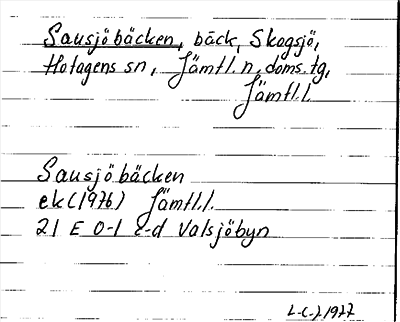 Sausjöbäcken, bäck, Skogsjö,
Hotagens sn, Jämtl. n. doms. tg,
Jämtl. l.
Sausjöbäcken
ek (1976) Jämtl. l.
21 E 0-1 c-d Valsjöbyn
L-C-) 1977